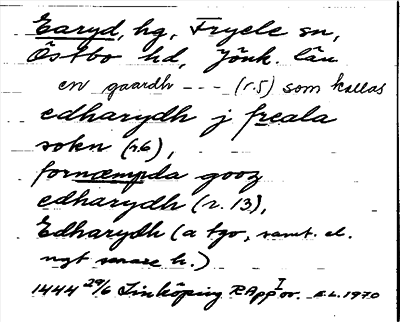 Earyd, hg, Fryele sn,
Östbo hd, Jönk. län
en gaardh --- (r.5) som kallas
edharydh j freala
sokn (r.6),
fornæmpda gooz
edharydh (r. 13),
Edharydh (a tgo, samt. el.
ngt senare h.)
1444 29/6 Linköping RApp or. E.L. 1970